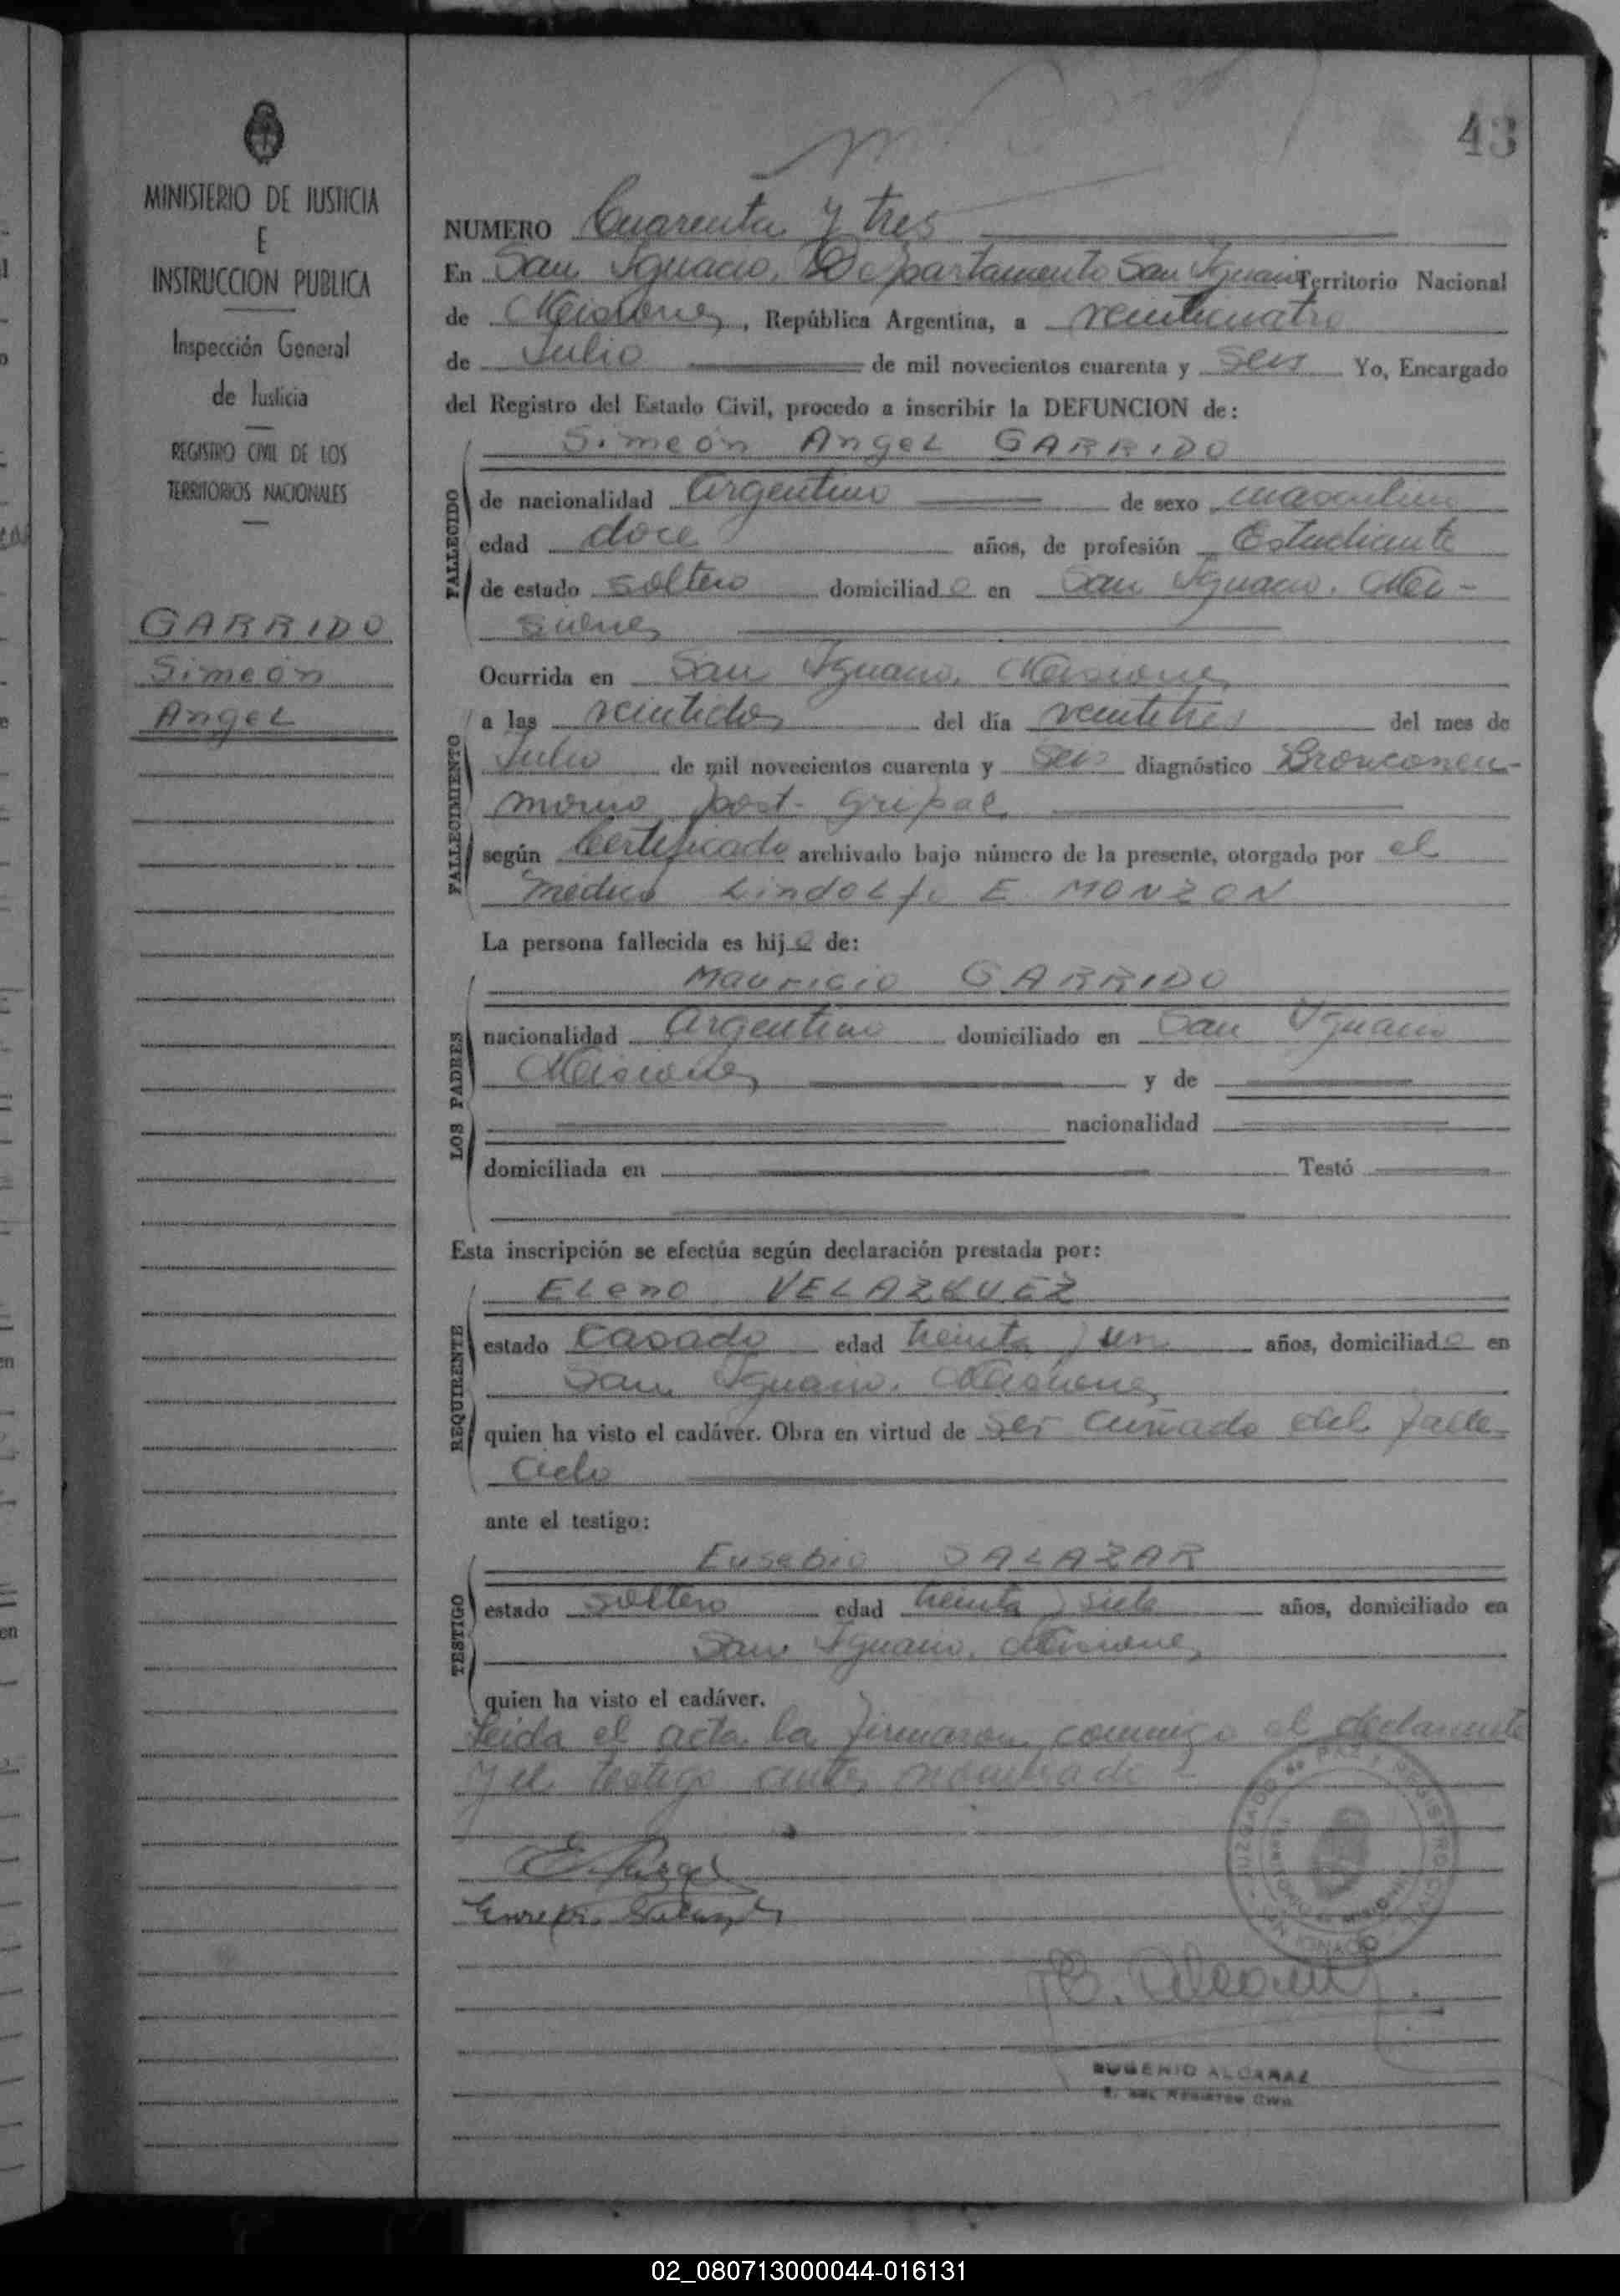 43
MINISTERIO DE JUSTICIA
E
INSTRUCCION PUBLICA
Inspección General
de Justicia
REGISTRO CIVIL DE LOS
TERRITORIOS NACIONALES
GARRIDO
Simeón
Angel
NUMERO Cuarenta y tres
En San Ignacio, Departamento San Ignacio Territorio Nacional
de Misiones, República Argentina, a veinticuatro
de Julio de mil novecientos cuarenta y seis Yo, Encargado
del Registro del Estado Civil, procedo a inscribir la DEFUNCION de:
Simeón Angel GARRIDO
FALLECIDO
de nacionalidad Argentino de sexo masculino
edad doce años, de profesión Estudiante
de estado soltero domiciliado en San Ignacio, Mi-
siones
FALLECIMIENTO
Ocurrida en San Ignacio, Misiones
a las veintidos del día veintitres del mes de
Julio de mil novecientos cuarenta y seis diagnóstico Bronconeu-
monia post-gripal
según Certificado archivado bajo número de la presente, otorgado por el
médico Lindolfo E. MONZON
La persona fallecida es hijo de:
LOS PADRES
Mauricio GARRIDO
nacionalidad Argentino domiciliado en San Ignacio
Misiones y de
nacionalidad
domiciliada en Testó
Esta inscripción se efectúa según declaración prestada por:
REQUIRENTE
Eleno VELAZQUEZ
estado Casado edad treinta y un años, domiciliado en
San Ignacio, Misiones
quien ha visto el cadáver. Obra en virtud de ser cuñado del falle-
cido
ante el testigo:
TESTIGO
Eusebio SALAZAR
estado soltero edad treinta y siete años, domiciliado en
San Ignacio, Misiones
quien ha visto el cadáver.
Leida el acta la firmaron conmigo el declarante
y el testigo antes nombrado
JUZGADO DE PAZ Y REGISTRO CIVIL
IGNACIO
EUGENIO ALCARAZ
E. DEL REGISTRO CIVIL
02_080713000044-016131